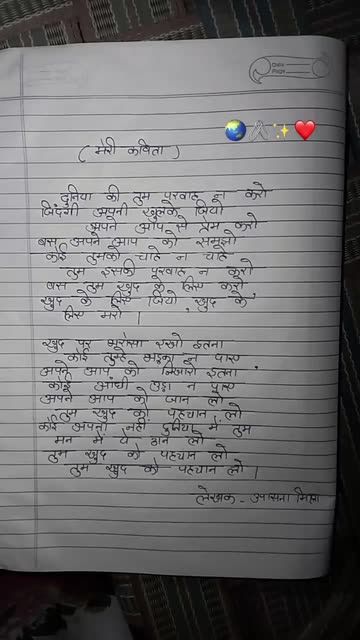 Date
Page
( मेरी कविता )
दुनिया की तुम परवाह न करो
जिंदगी अपनी खुलके जियो
अपने आप से प्रेम करो
बस अपने आप को समझो
कोई तुमको चाहे न चाहे
तुम इसकी परवाह न करो
बस तुम खुद के लिए करो
खुद के लिए जियो खुद के
लिए मरो ।
खुद पर भरोसा रखो इतना
कोई तुम्हे भड़का न पाए
अपने आप को निखारो इतना
कोई आंधी उड़ा न पाए
अपने आप को जान लो
तुम खुद को पहचान लो
कोई अपना नहीं दुनिया में तुम
मन में ये ठान लो
तुम खुद को पहचान लो
तुम खुद को पहचान लो ।
लेखक - उपासना मिश्रा